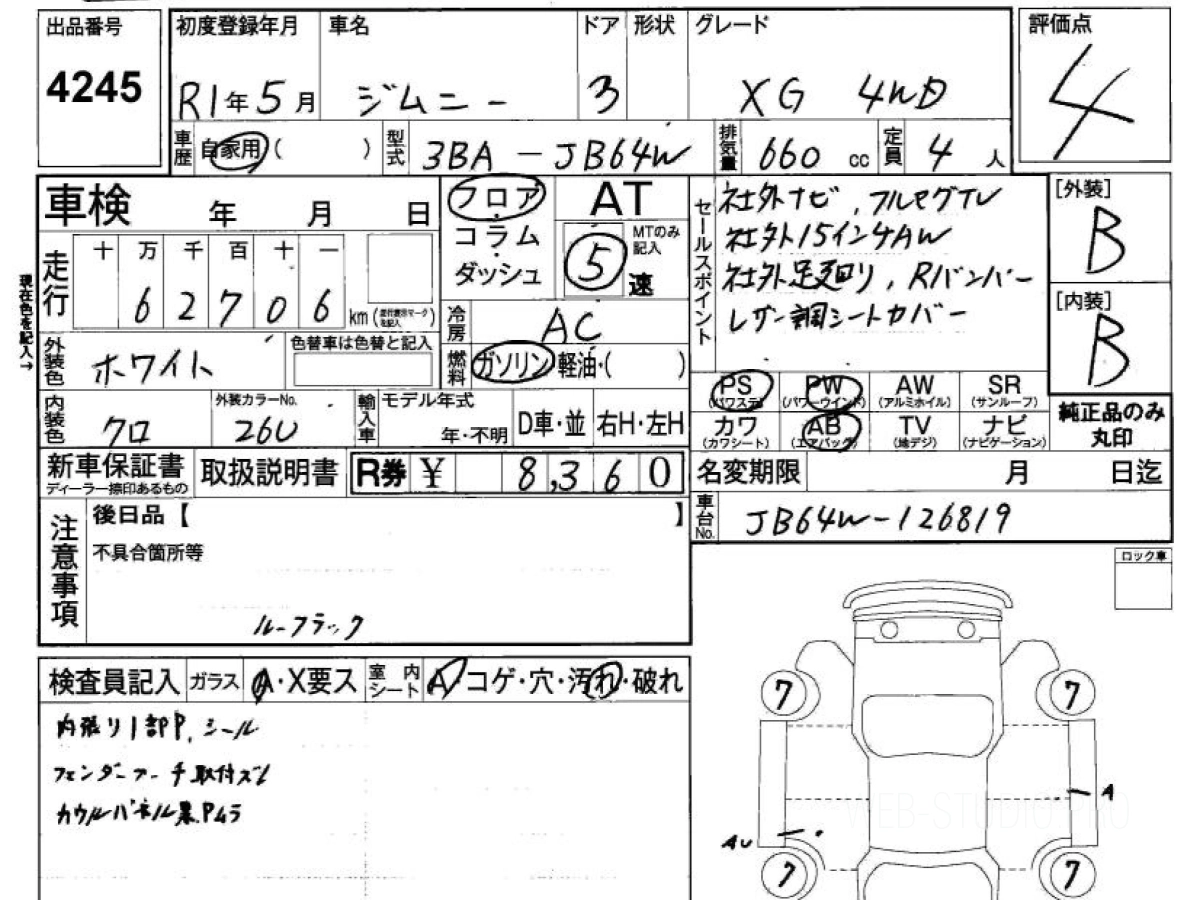 出品番号
4245
初度登録年月 車名 ドア 形状 グレード
R1年5月 ジムニー 3 XG 4WD
評価点
4
車歴 自家用( ) 型式 3BA-JB64W 排気量 660 cc 定員 4人
車検 年 月 日
フロア・コラム・ダッシュ
AT
5速
MTのみ記入
セールスポイント
社外ナビ、フルセグTV
社外15インチAW
社外足廻り、Rバンパー
レザー調シートカバー
[外装]
B
[内装]
B
現在色を記入→
走行 十 万 千 百 十 一
6 2 7 0 6 km
冷房 AC
燃料 ガソリン・軽油・( )
外装色 ホワイト
色替車は色替と記入
内装色 クロ
外装カラーNo.
26U
輸入車 モデル年式
年・不明 D車・並 右H・左H
PS PW AW SR
(パワステ) (パワーウインド) (アルミホイル) (サンルーフ)
カワ AB TV ナビ
(カワシート) (エアバッグ) (地デジ) (ナビゲーション)
純正品のみ
丸印
新車保証書
ディーラー捺印あるもの
取扱説明書 R券 ¥ 8,360
名変期限 月 日迄
車台No. JB64W-126819
注意事項
後日品【 】
不具合箇所等
ルーフラック
ロック車
検査員記入 ガラス A・X要ス 室内シート A・コゲ・穴・汚れ・破れ
内張り1部P、シール
フェンダーアーチ取付ズレ
カウルパネル黒Pムラ
7 7
A
AU
7 7
WEB-STUDIO PRO